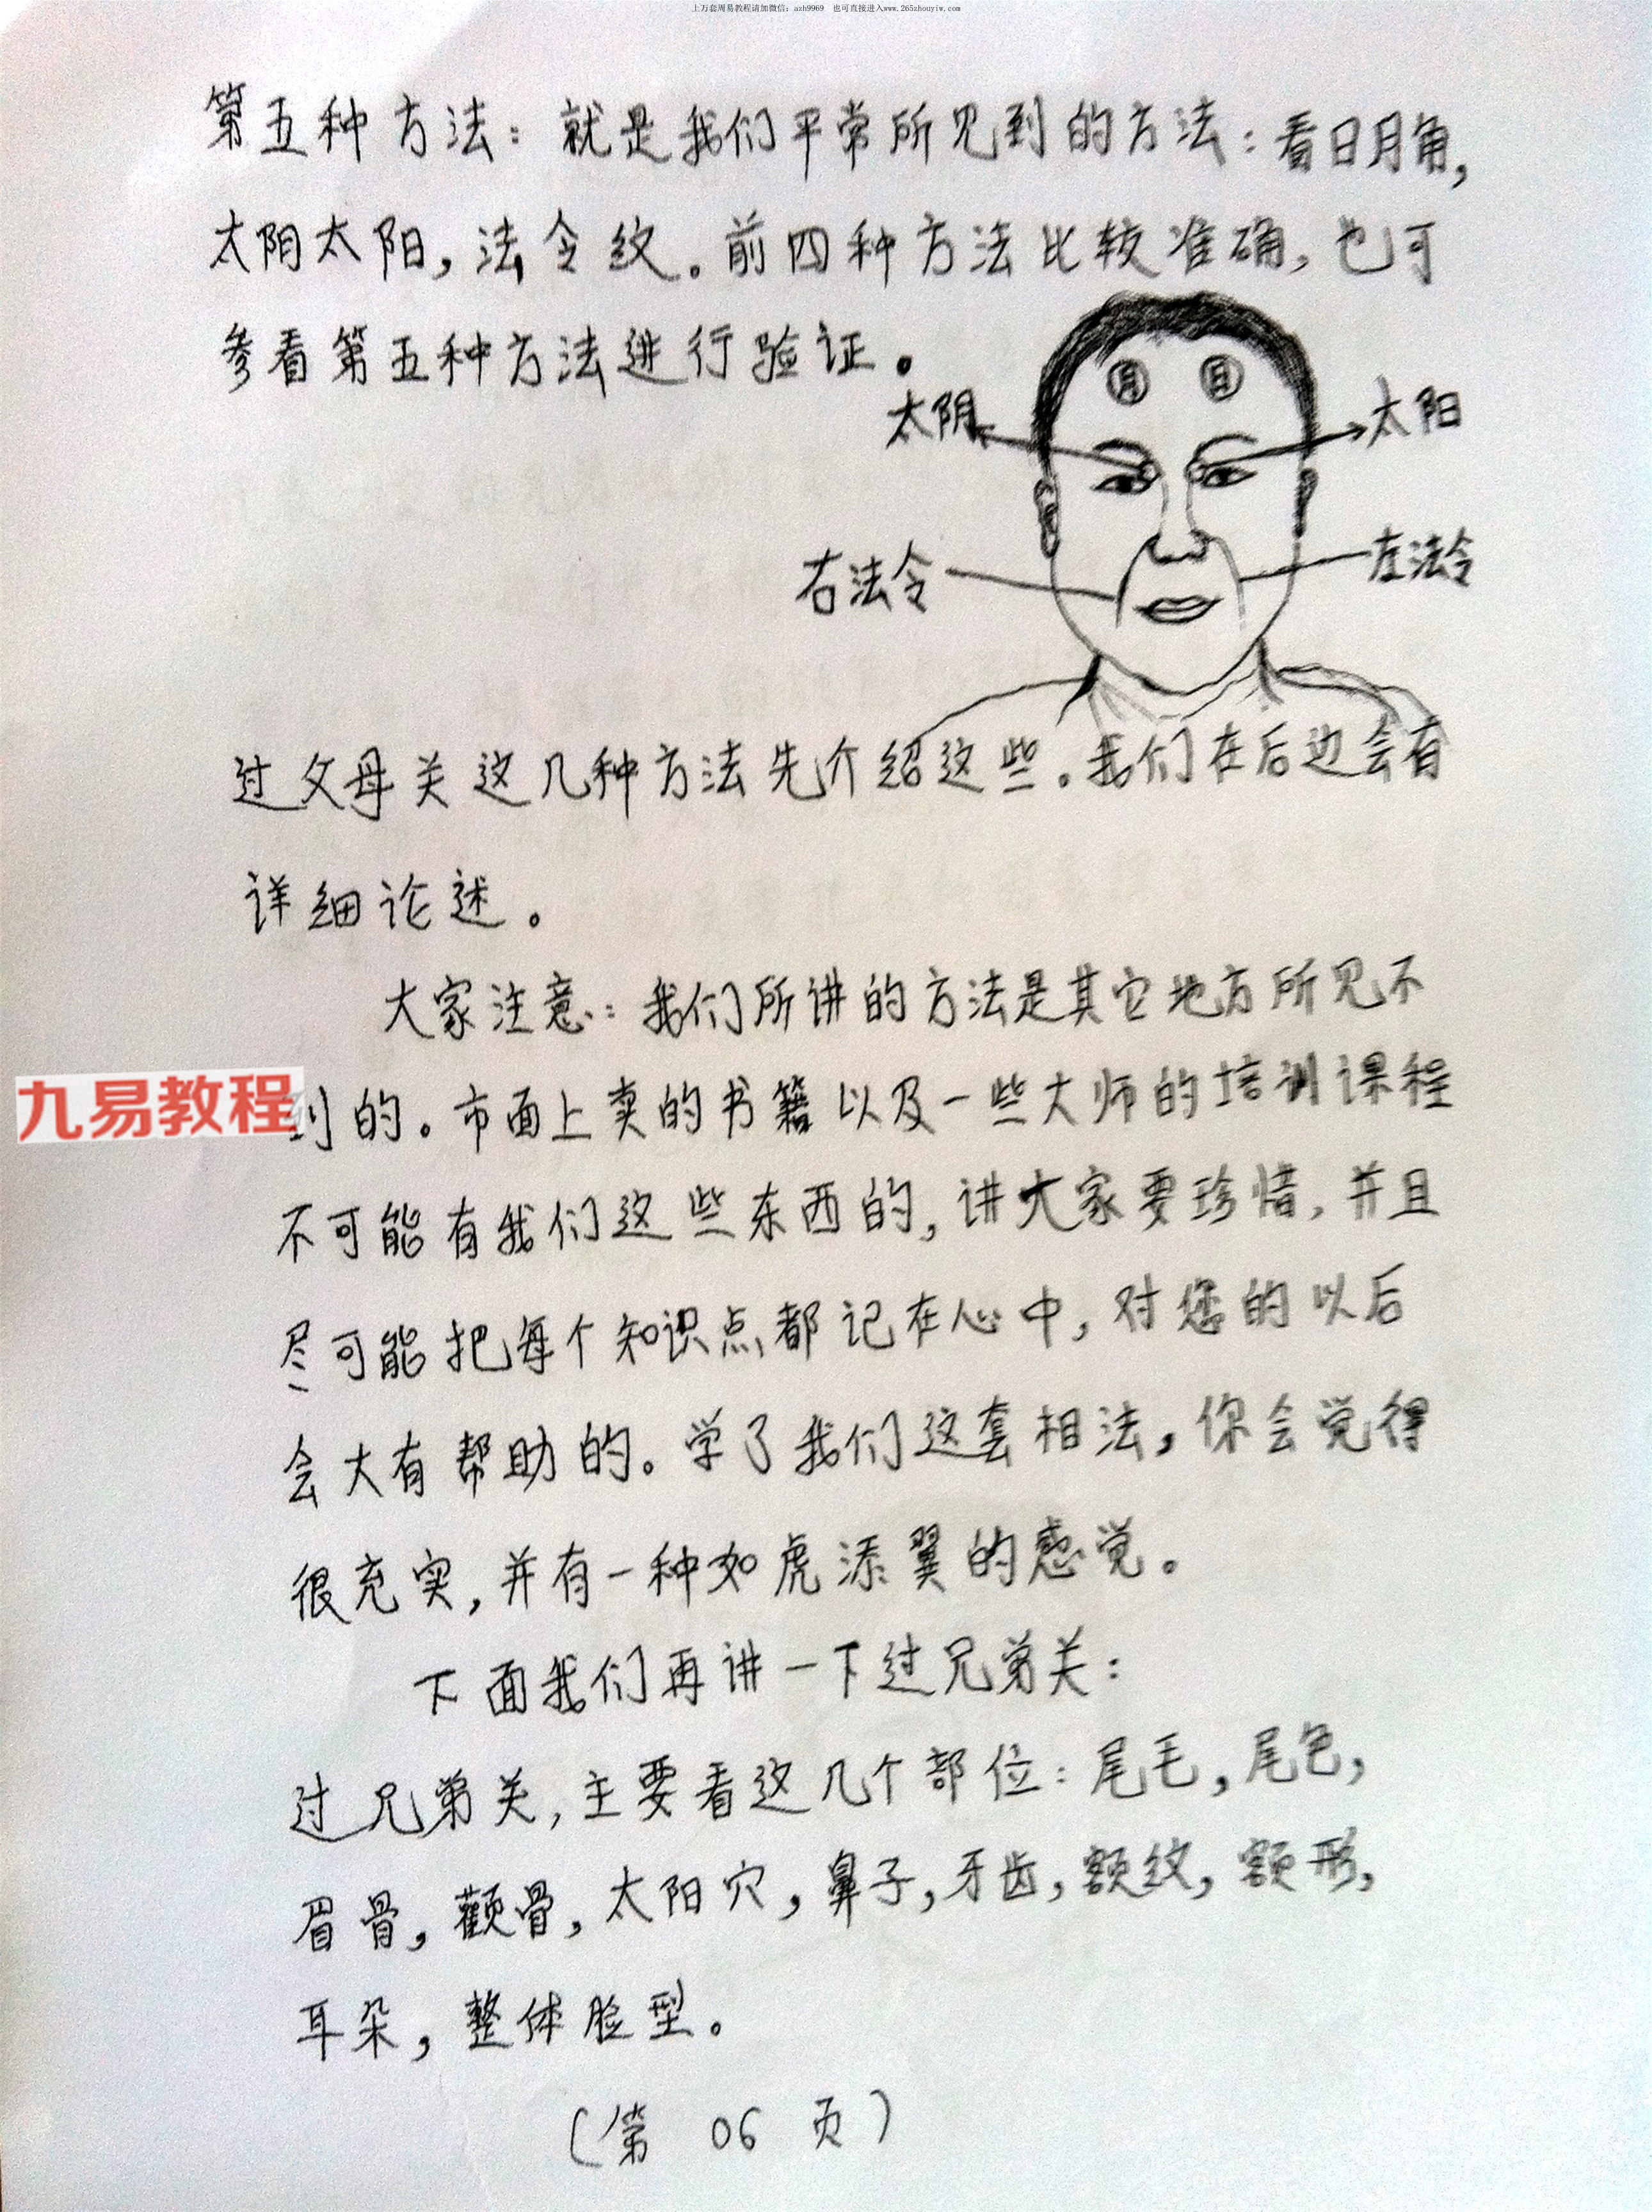 上万套周易教程请加微信：azh9969 也可直接进入www.265zhouyiw.com
第五种方法：就是我们平常所见到的方法：看日月角，
太阴太阳，法令纹。前四种方法比较准确，也可
参看第五种方法进行验证。
月 日
太阴 太阳
右法令 左法令
过父母关这几种方法先介绍这些。我们在后边会有
详细论述。
大家注意：我们所讲的方法是其它地方所见不
九易教程
到的。市面上卖的书籍以及一些大师的培训课程
不可能有我们这些东西的，讲大家要珍惜，并且
尽可能把每个知识点都记在心中，对您的以后
会大有帮助的。学了我们这套相法，你会觉得
很充实，并有一种如虎添翼的感觉。
下面我们再讲一下过兄弟关：
过兄弟关，主要看这几个部位：尾毛，尾色，
眉骨，颧骨，太阳穴，鼻子，牙齿，额纹，额形，
耳朵，整体脸型。
（第 06 页）